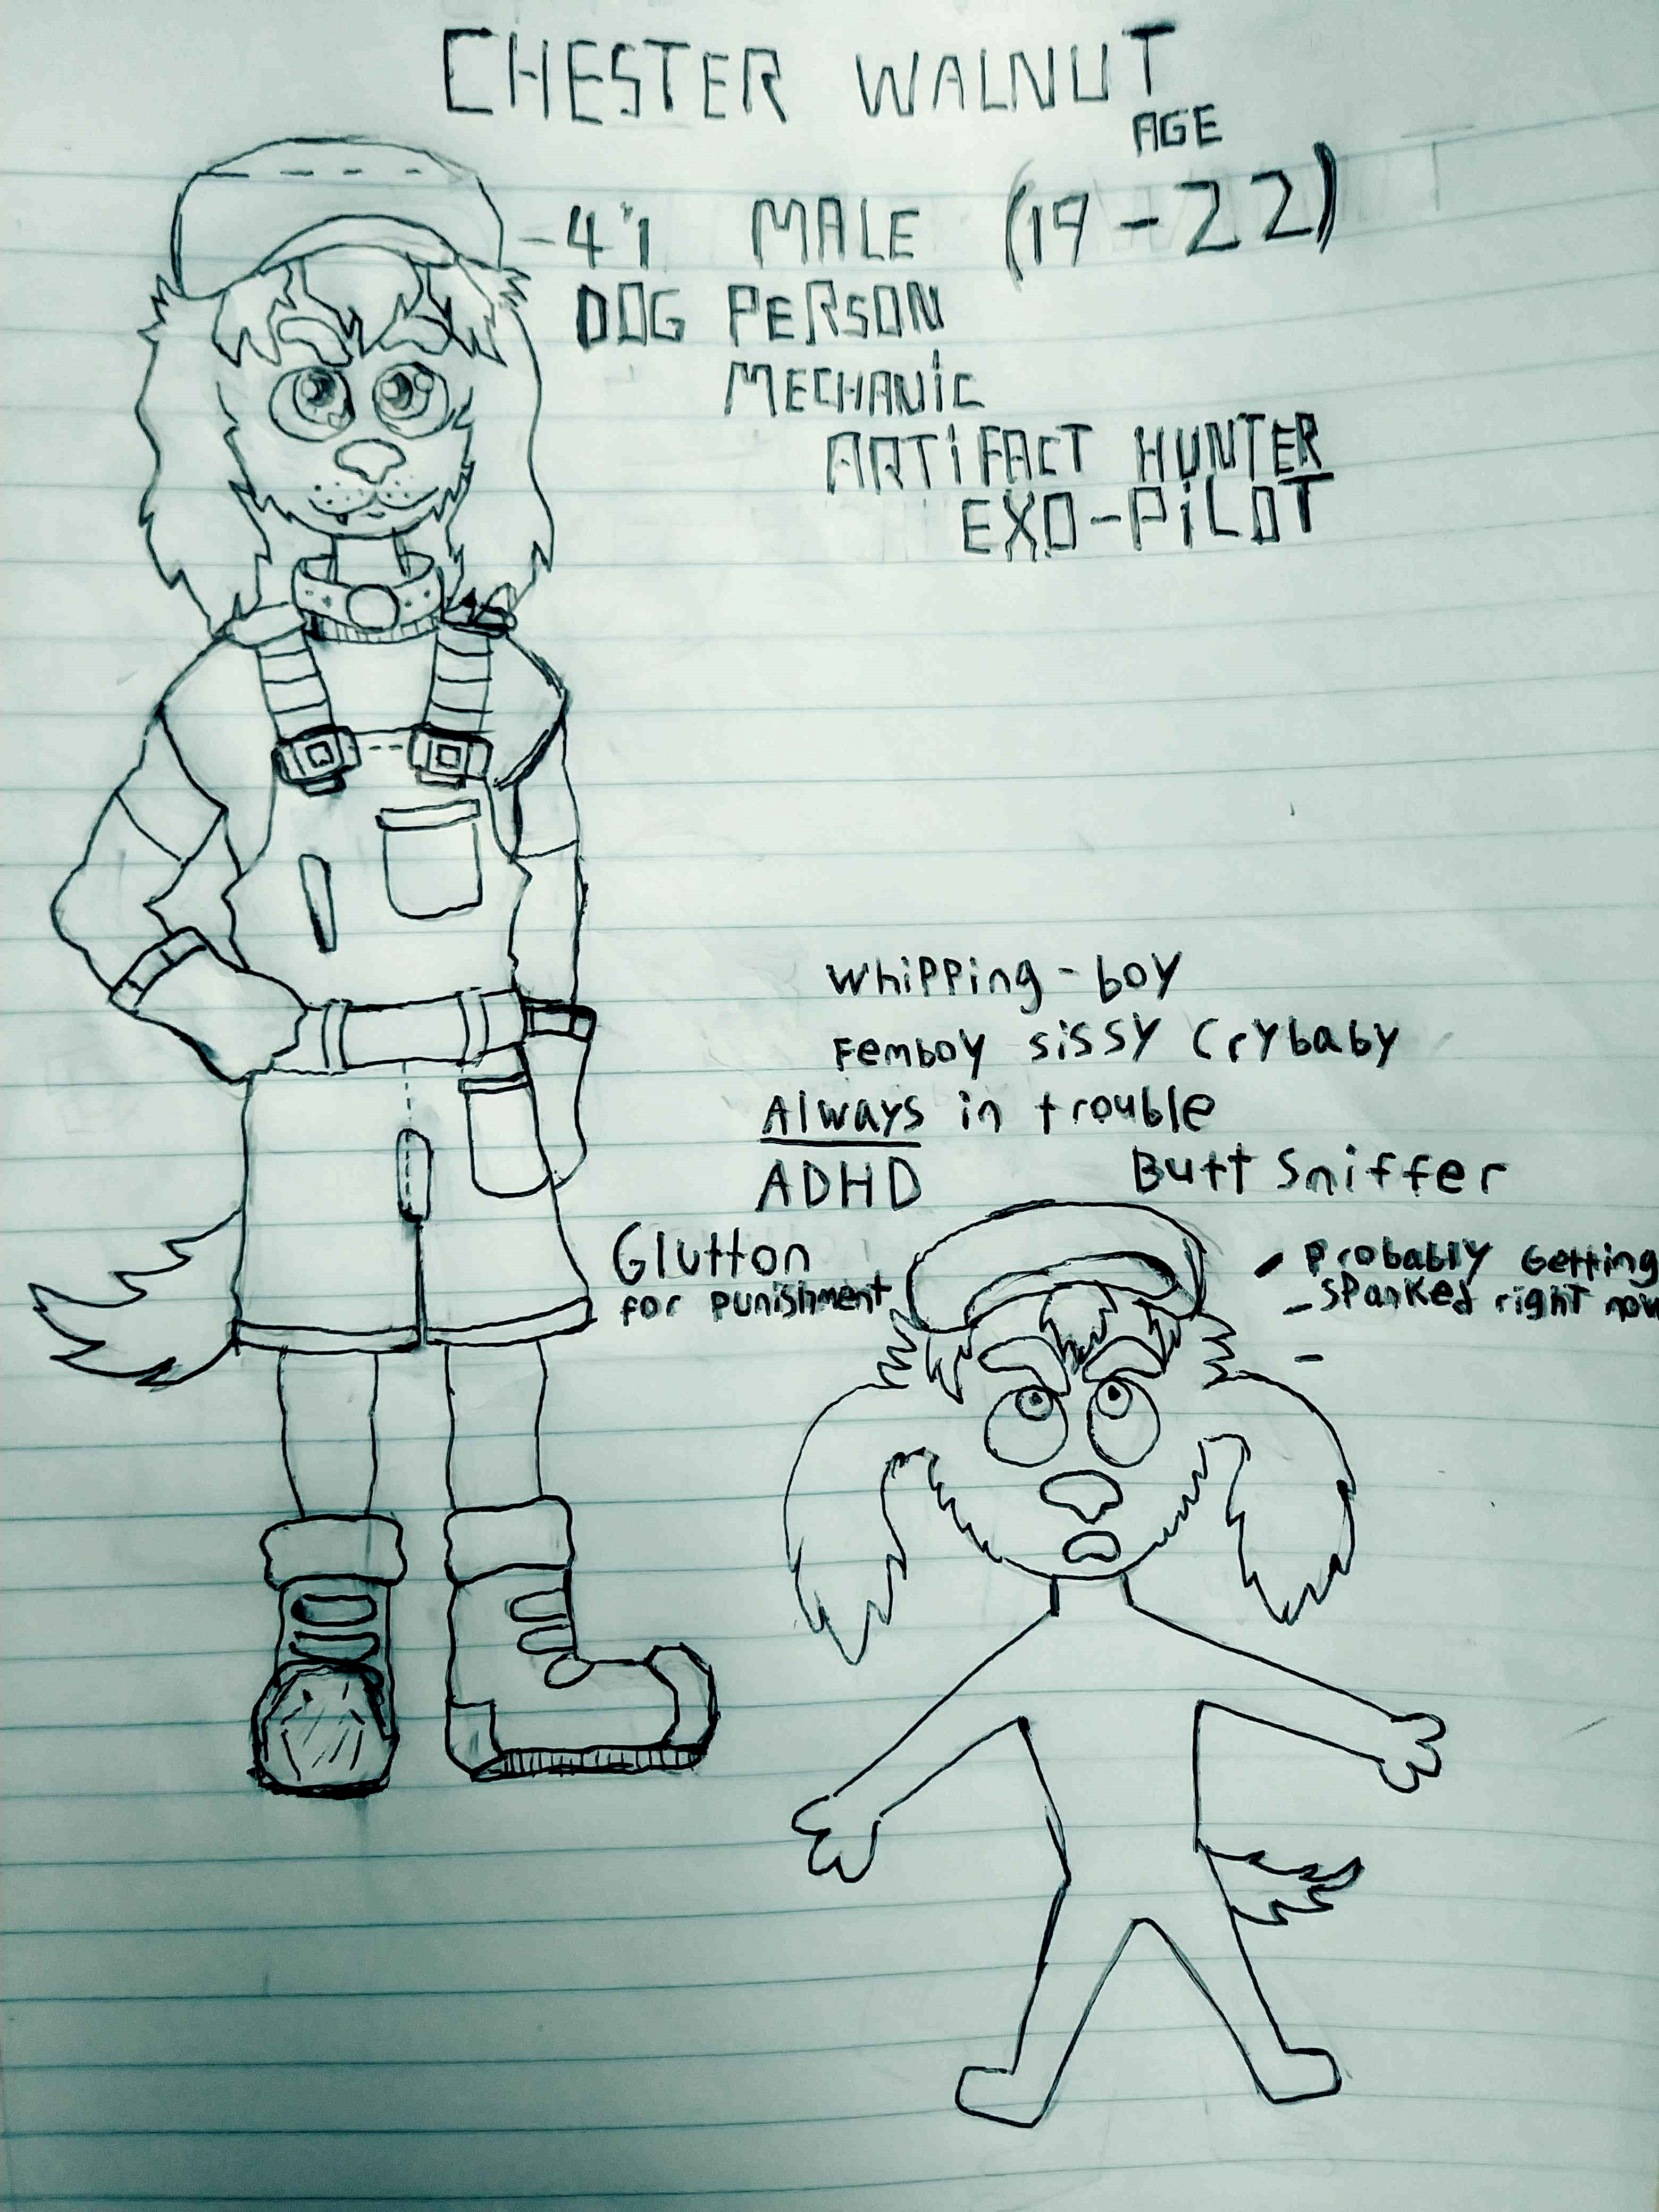 CHESTER WALNUT
AGE
-4'1 MALE (19-22)
DOG PERSON
MECHANiC
ARTiFACT HUNTER
EXO-PiLOT
Whipping-boy
Femboy sissy Crybaby
Always in trouble
ADHD
Butt Sniffer
Glutton
for punishment
- Probably Getting
- spanked right now
-